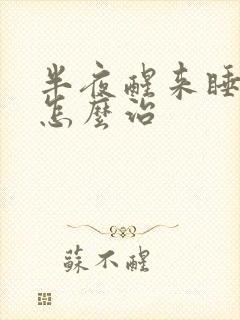 半夜醒来睡
怎麼治
蘇不醒